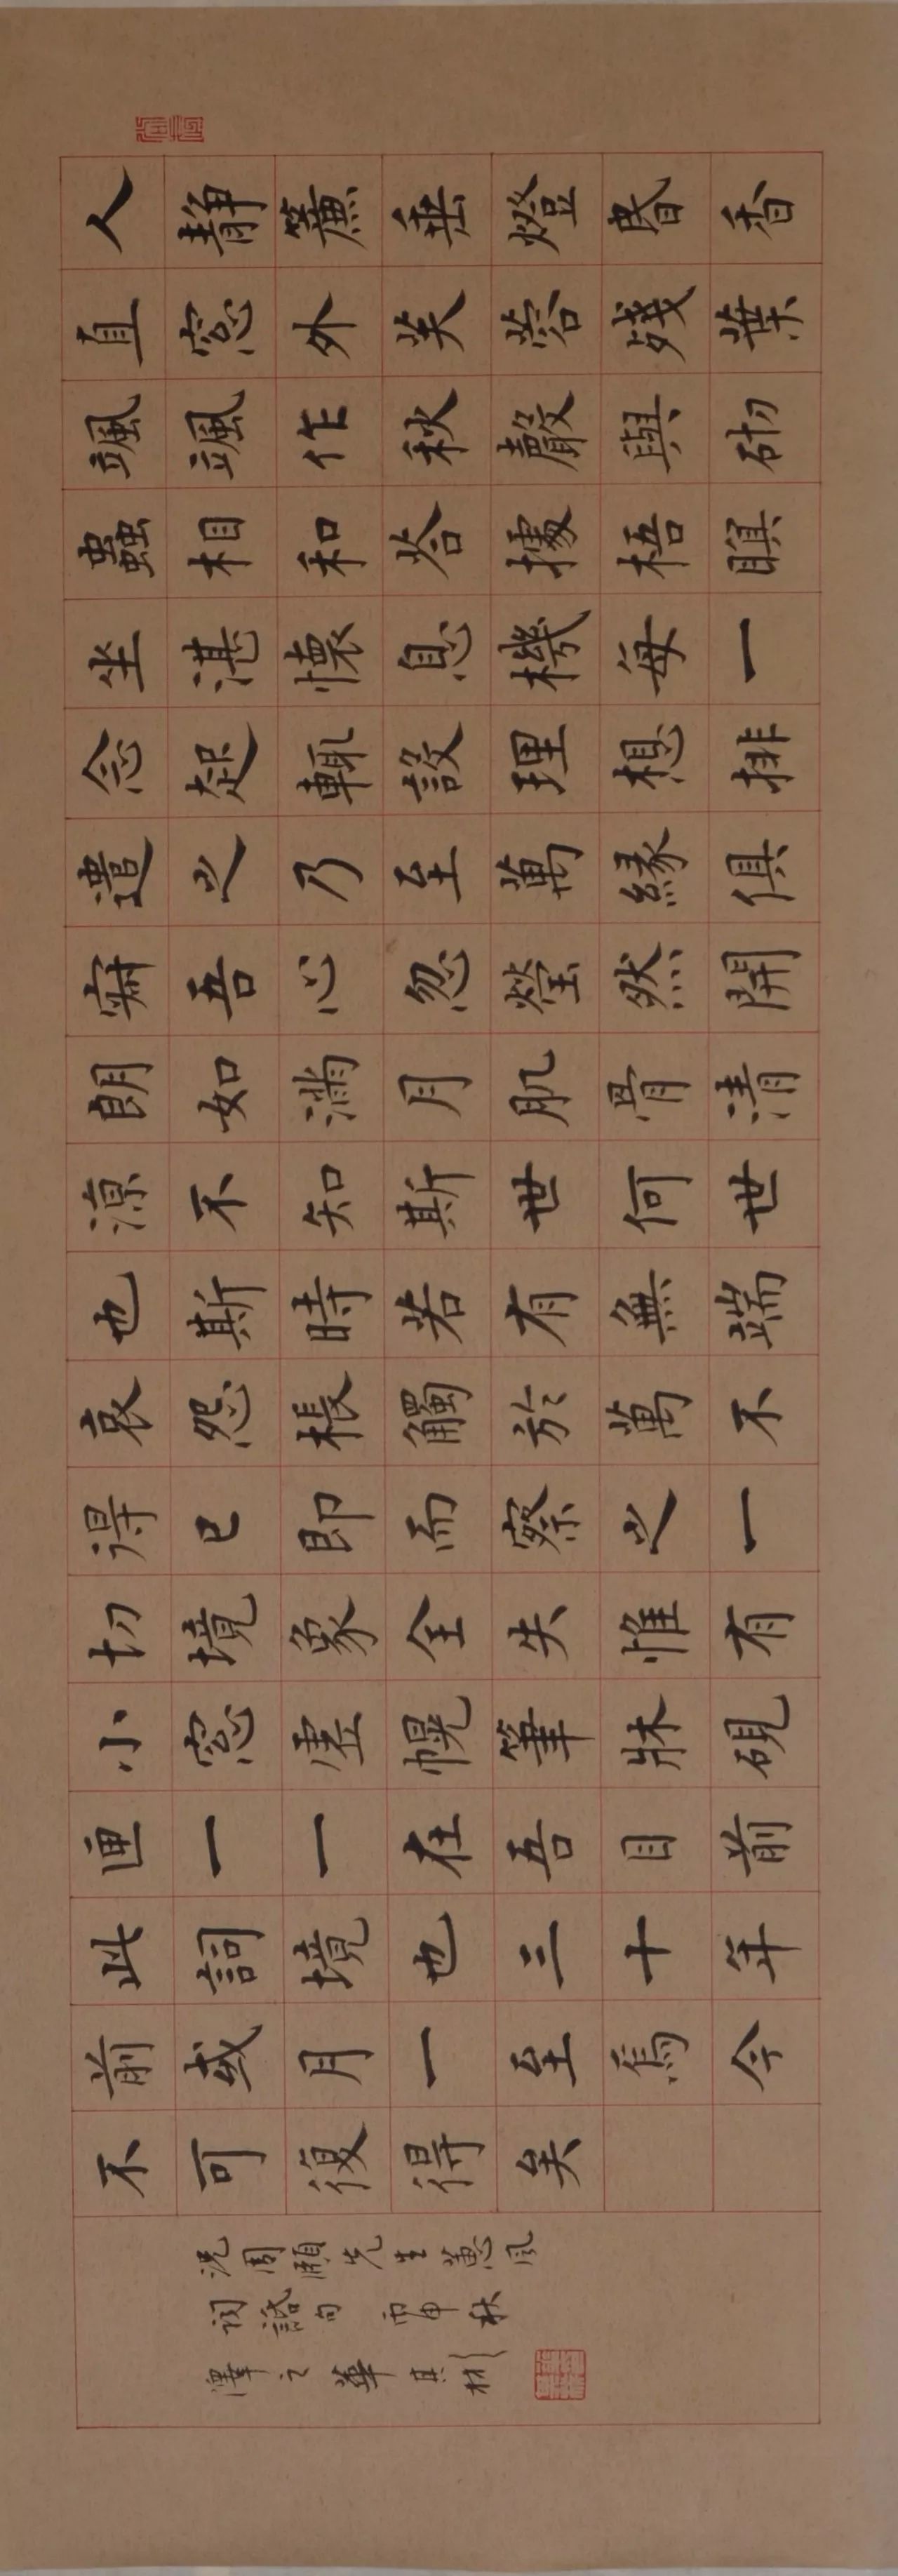 人靜簾垂燈昏香
直窓外芙蓉殘葉
颯颯作秋聲與砌
蟲相和答據梧瞑
坐湛懷息機每一
念起輒設理想排
遣之乃至萬緣俱
寂吾心忽瑩然開
朗如滿月肌骨清
涼不知斯世何世
也斯時若有無端
哀怨棖觸於萬不
得已即而察之一
切境象全失惟有
小窓虛幌筆牀硯
匣一一在吾目前
此詞境也三十年
前或月一至焉今
不可復得矣
況周頤先生蕙風
詞話句 丙申秋
澤之華其彬